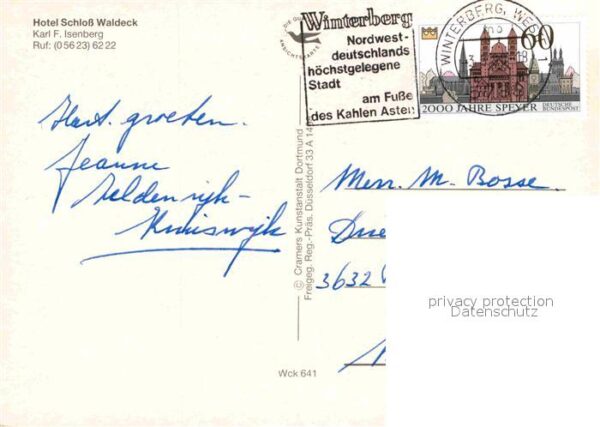 Hotel Schloß Waldeck
Karl F. Isenberg
Ruf: (0 56 23) 62 22
Hart. groeten.
Jeanne
Kruiswijk
Winterberg
Nordwest-
deutschlands
höchstgelegene
Stadt
am Fuße
des Kahlen Asten
WINTERBERG, WE
60
2000 JAHRE SPEYER
DEUTSCHE
BUNDESPOST
© Cramers Kunstanstalt Dortmund
Freigeg. Reg.-Präs. Düsseldorf 33 A 14
Wck 641
Mevr. M. Bosse.
3632
privacy protection
Datenschutz